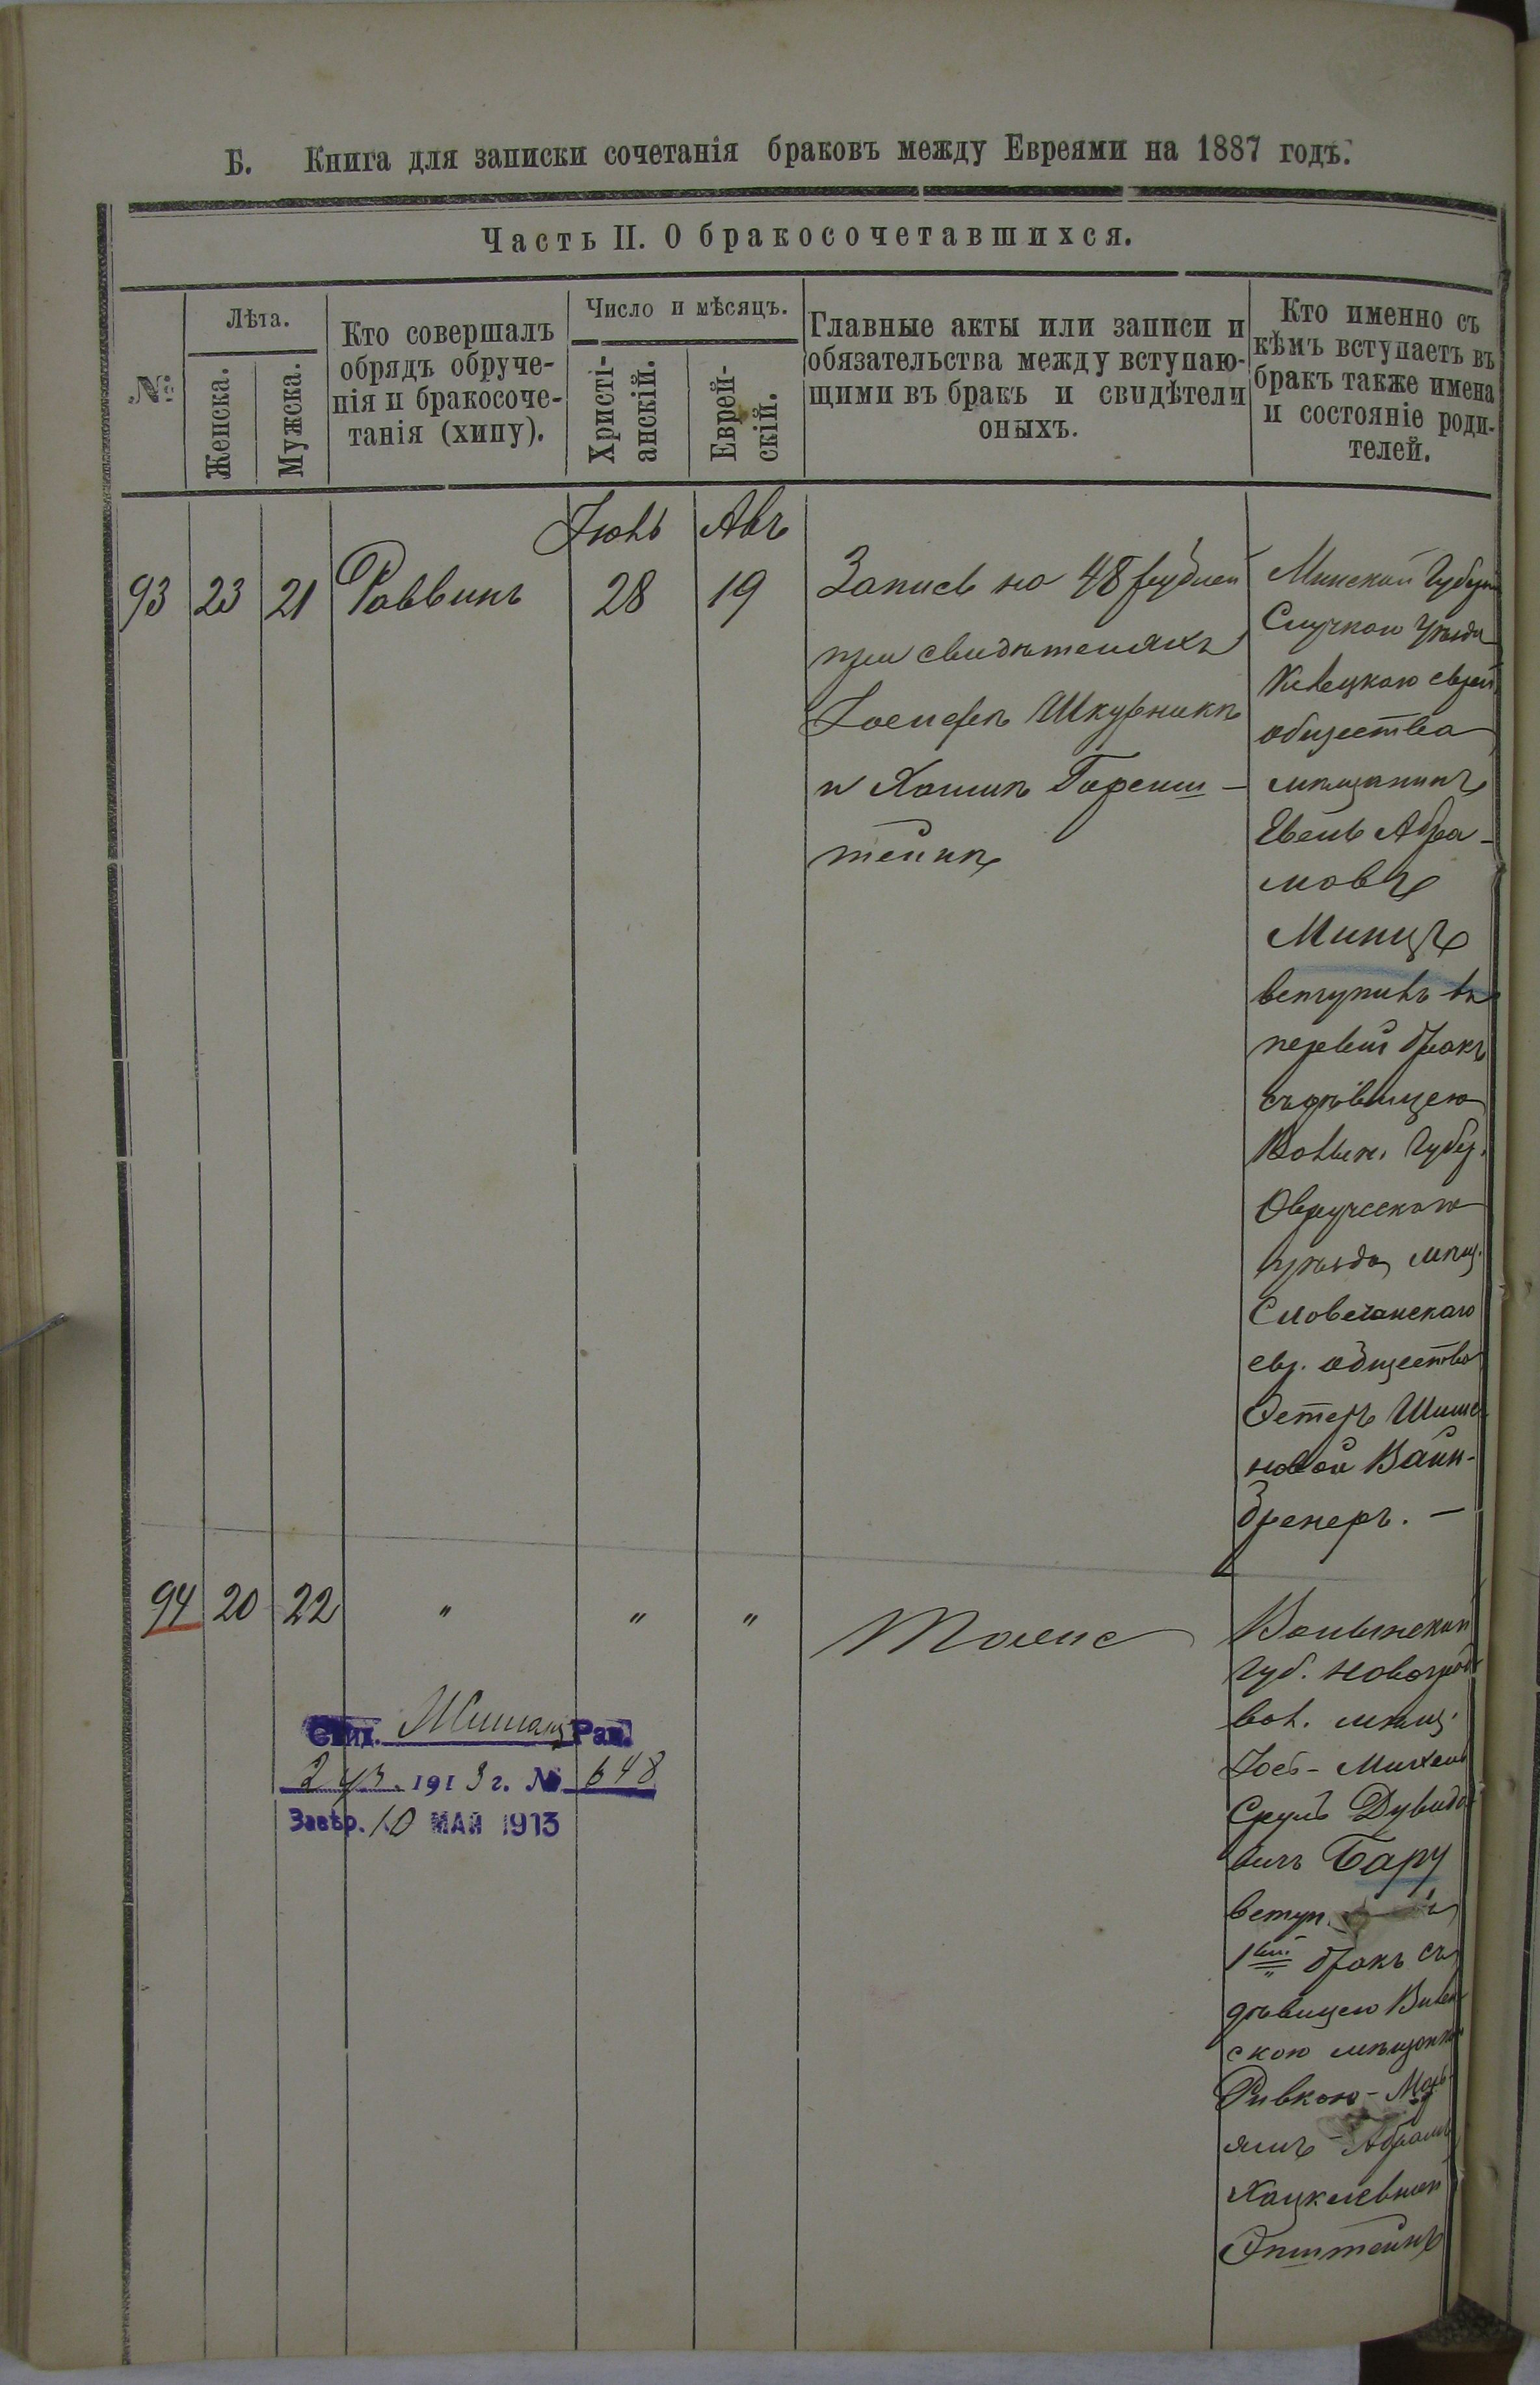 Б. Книга для записки сочетанія браковъ между Евреями на 1887 годъ.
Часть II. О бракосочетавшихся.
№
Лѣта.
Женска.
Мужска.
Кто совершалъ
обрядъ обруче-
нія и бракосоче-
танія (хипу).
Число и мѣсяцъ.
Христі-
анскій.
Еврей-
скій.
Главные акты или записи и
обязательства между вступаю-
щими въ бракъ и свидѣтели
оныхъ.
Кто именно съ
кѣмъ вступаетъ въ
бракъ также имена
и состояніе роди-
телей.
Іюль Авъ
93 23 21 Раввинъ 28 19
Запись на 48 рублей
при свидѣтеляхъ
Іосифъ Шкурникъ
и Хаимъ Горенш-
тейнъ
Минской Губерн
Слуцкого уѣзда
общества
мѣщанинъ
Абра-
мовъ
Минцъ
вступилъ въ
первый бракъ
съ дѣвицею
Волын. Губер.
Овручскаго
уѣзда, мѣщ.
Словечанскаго
евр. общества
Эстеръ
новой Вайн-
бренеръ. —
94 20 22 " " "
Тоже
Волынской
Губ. Новоград
вол. мѣщ.
Сруль Дувидо
вичъ Бару
вступ.
1ый бракъ съ
дѣвицею
скою мѣщанкой
Ривкою-
Абрамъ
Хацкелевной
Эпштейнъ
Рав.
1913 г. № 648
Завѣр. 10 МАЙ 1913